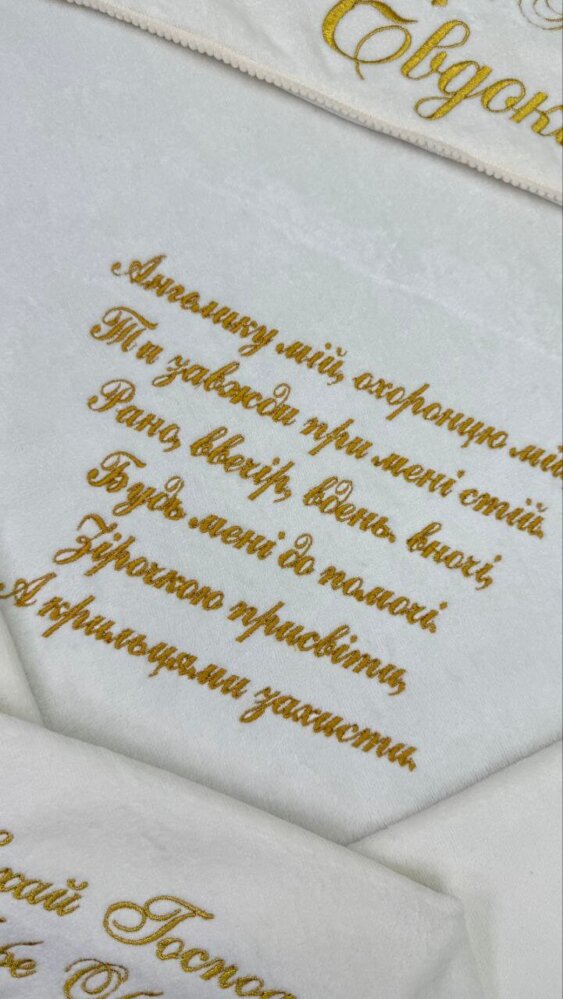 Ангелику мій, охоронцю мій
Ти завжди при мені стій.
Рано, ввечір, вдень. вночі,
Будь мені до помочі.
Зірочкою присвіти,
А крильцями захисти.